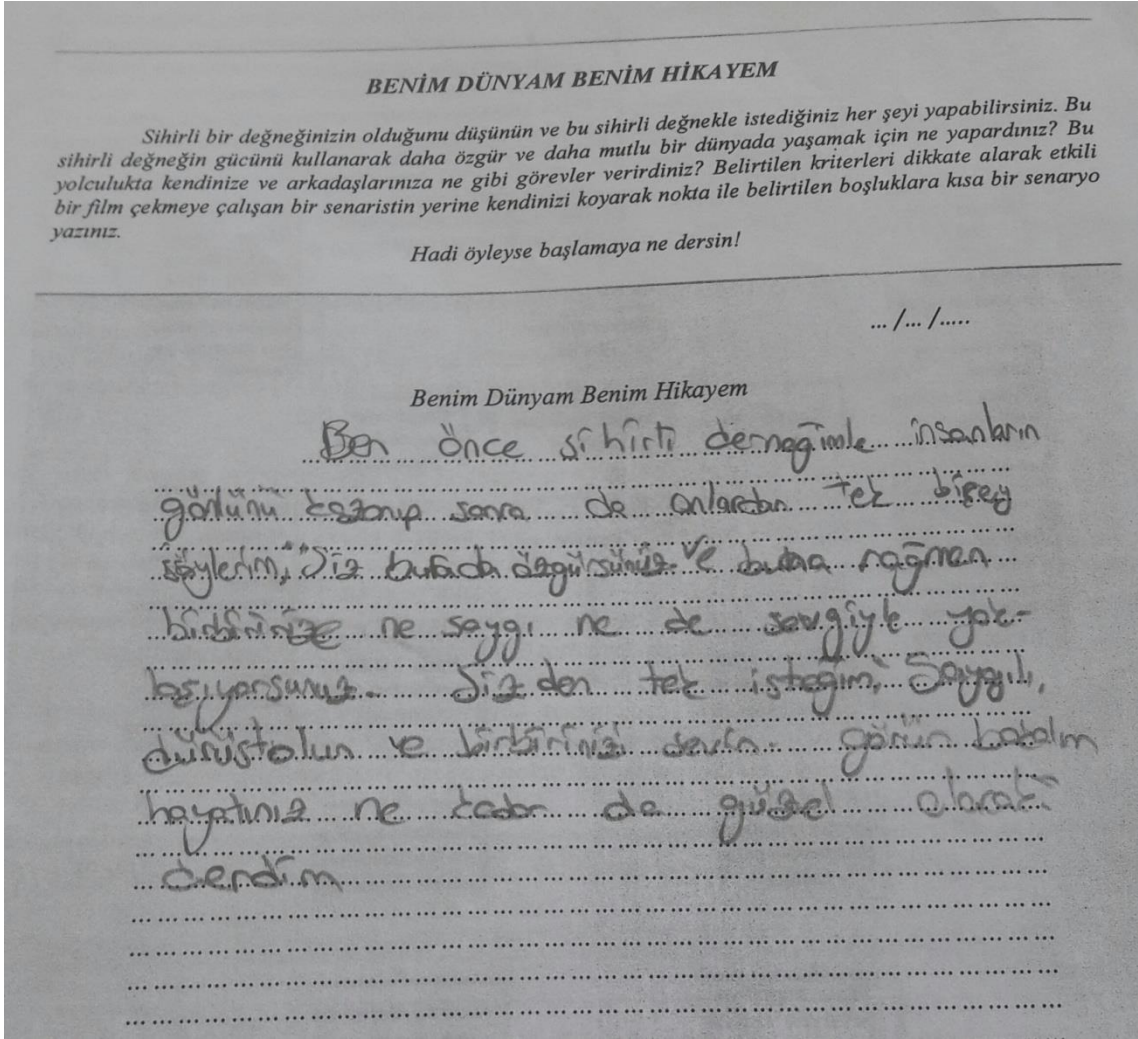 BENİM DÜNYAM BENİM HİKAYEM
Sihirli bir değneğinizin olduğunu düşünün ve bu sihirli değnekle istediğiniz her şeyi yapabilirsiniz. Bu
sihirli değneğin gücünü kullanarak daha özgür ve daha mutlu bir dünyada yaşamak için ne yapardınız? Bu
yolculukta kendinize ve arkadaşlarınıza ne gibi görevler verirdiniz? Belirtilen kriterleri dikkate alarak etkili
bir film çekmeye çalışan bir senaristin yerine kendinizi koyarak nokta ile belirtilen boşluklara kısa bir senaryo
yazınız.
Hadi öyleyse başlamaya ne dersin!
... /... /.....
Benim Dünyam Benim Hikayem
Ben önce sihirli derneğimle insanların
gönlünü kazanıp sonra da onlardan tek bişey
söylerim, "Siz burada özgürsünüz. Ve buna rağmen
birbirinize ne saygı ne de sevgiyle yak-
laşıyorsunuz. Sizden tek isteğim, Saygılı,
dürüst olun ve birbirinizi sevin. görün bakalım
hayatınız ne kadar da güzel olarak"
derdim